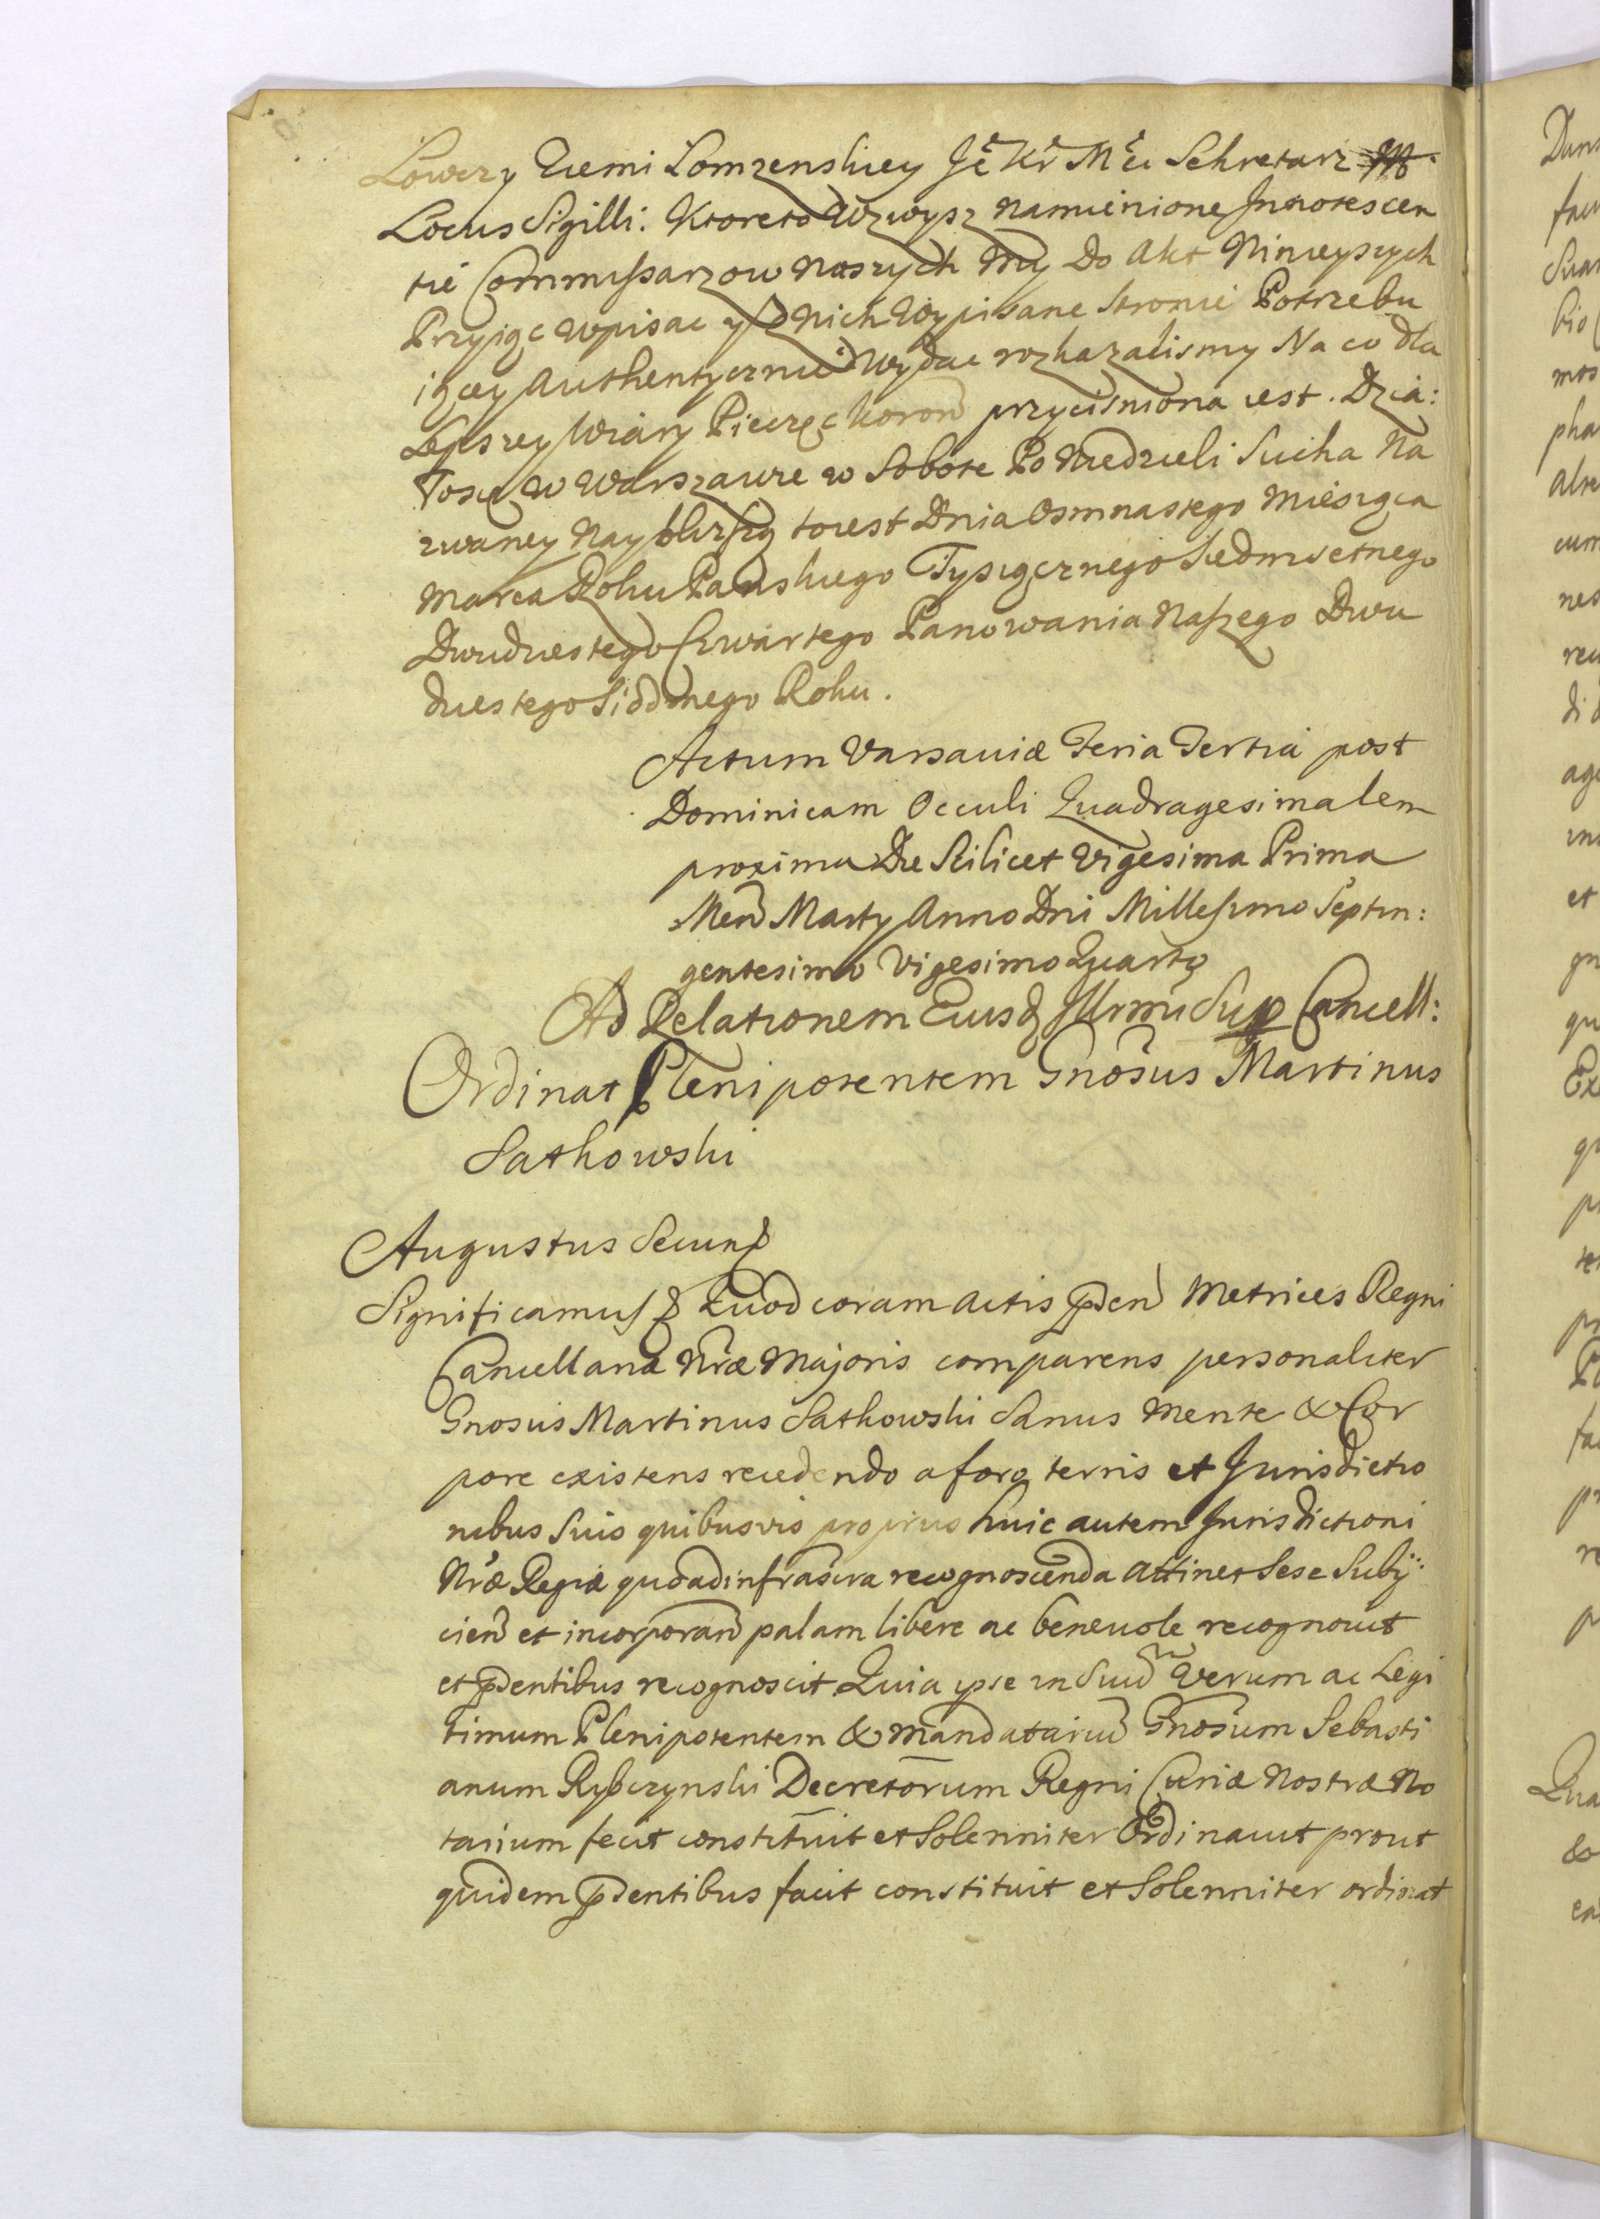 Łowczy Ziemi Łomzenskiey Je Kr Mci Sekretarz
Locus Sigilli: Ktoreto Wzwysz namienione Innotescen
tie Commissarzow naszych My Do Akt Ninieyszych
Przyiąc wpisac y z nich Wypisane stronie Potrzebu
iącey Authentycznie Wydac rozkazalismy Na co dla
Lepszey Wiary Pieczęc Koron przycisniona iest. Dzia:
Łosię w Warszawie w Sobotę Po Niedzieli Sucha Na
zwaney Nayblizszą toiest Dnia Osmnastego Miesiąca
Marca Roku Panskiego Tysiącznego Siedmsetnego
Dwudziestego Czwartego Panowania Naszego Dwu
dziestego Siodmego Roku.
Actum Varsaviæ Feria Tertia post
Dominicam Occuli Quadragesimalem
proxima Die Scilicet Vigesima Prima
Men Marty Anno Dni Millesimo Septin:
gentesimo Vigesimo Quarto
Ad Relationem Eiusd Illrmi Sup Cancell:
Ordinat Plenipotentem Gnosus Martinus
Satkowski
Augustus Secund
Significamus Quod coram Actis pden Metrices Regni
Cancellariæ Nræ Majoris comparens personaliter
Gnosus Martinus Satkowski Sanus Mente & Cor
pore existens recedendo a foro terris et Jurisdictio
nibus Suis quibusvis proprius huic autem Jurisdictioni
Nræ Regiæ quoad infrascra recognoscenda attinet Sese Subij
cien et incorporan palam libere ac benevole recognovit
et pdentibus recognoscit Quia ipse in Suu Verum ac Legi
timum Plenipotentem & Mandatariu Gnosum Sebasti
anum Rybczynski Decretorum Regni Curiæ Nostræ No
tarium fecit constituit et Solenniter Ordinavit prout
quidem pdentibus facit constituit et Solenniter ordinat